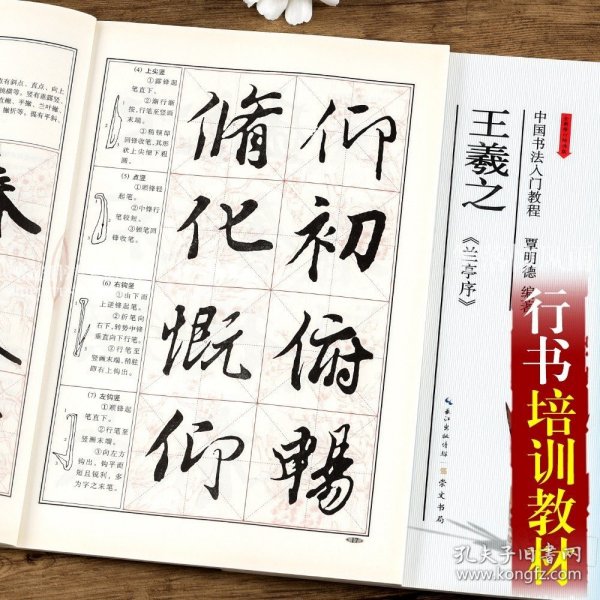 直有斜点、直点、向上
(4) 上尖竖
①露锋起
笔直下。
②渐行渐
按,行笔至竖画
末端。
③稍顿即
回锋收笔,其形
状上尖细下粗
圆。
(5) 点竖
①顺锋轻
起笔。
②中锋行
笔较短。
③顿笔回
锋收笔。
(6) 右钩竖
①由下而
上逆锋起笔。
②折笔向
右下,转势中锋
垂直向下行笔。
③行笔至
竖画末端,稍驻
即右上钩出。
(7) 左钩竖
①顺锋起
笔直下。
②行笔至
竖画末端。
③向左方
钩出,钩平而
短且锐利,多
为字之末笔。
仰初俯暢
脩化慨仰
17
中国书法入门教程
覃明德 编著
王羲之
《兰亭序》
长江出版传媒
崇文书局
行书培训教材
孔夫子旧书网
www.kongfz.com